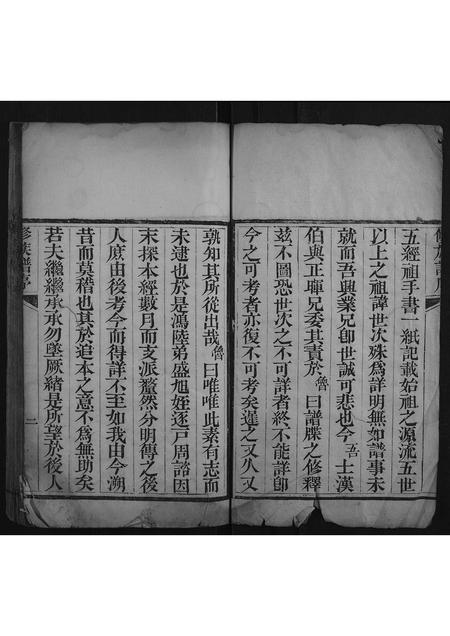 修族譜序
五經祖手書一紙記載始祖之源流五世
以上之祖諱世次殊為詳明無如譜事未
就而吾興業兄卽世誠可悲也今吾士漢
伯與正暉兄委其責於魯曰譜牒之修釋
玆不圖恐世次之不可詳者終不能詳卽
今之可考者亦復不可考矣遲之又久又
孰知其所從出哉魯曰唯唯此素有志而
未逮也於是鴻陸弟盛旭姪逐戸周諮因
末探本經數月而支派犛然分明傳之後
人庶由後考今而得詳不至如我由今溯
昔而莫稽也其於追本之意不為無助矣
若夫繼繼承承勿墜厥緒是所望於後人
修族譜序
二